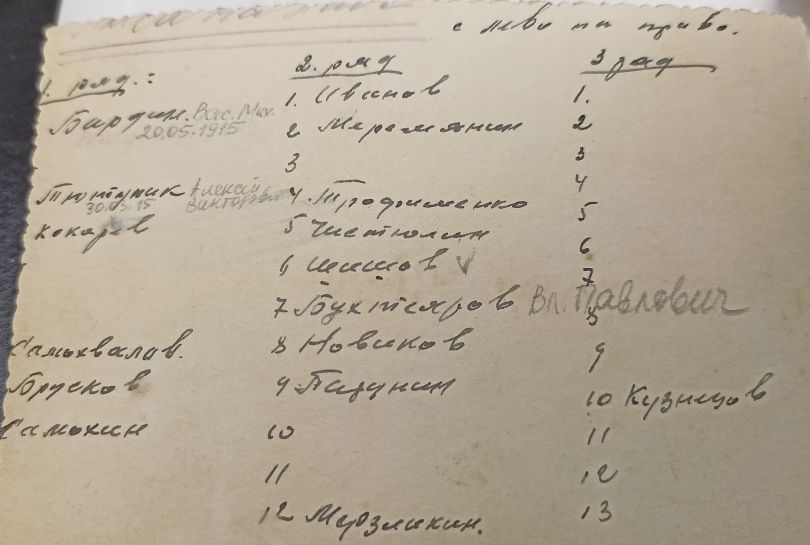 с лева на право.
1. ряд.:
Бардин. Вас. Мих.
20.05.1915
Тютюник Алексей
30.03.15 Викторович
Кокарев
Самохвалав.
Брусков
Самохин
2. ряд
1. Иванов
2 Меремянин
3
4. Трофименко
5 Чистюлин
6 Шишов V
7 Бухтияров Вл. Павлович
8 Новиков
9 Пизунин
10
11
12 Мерзликин.
3 ряд
1.
2
3
4
5
6
7
8
9
10 Кузнецов
11
12
13